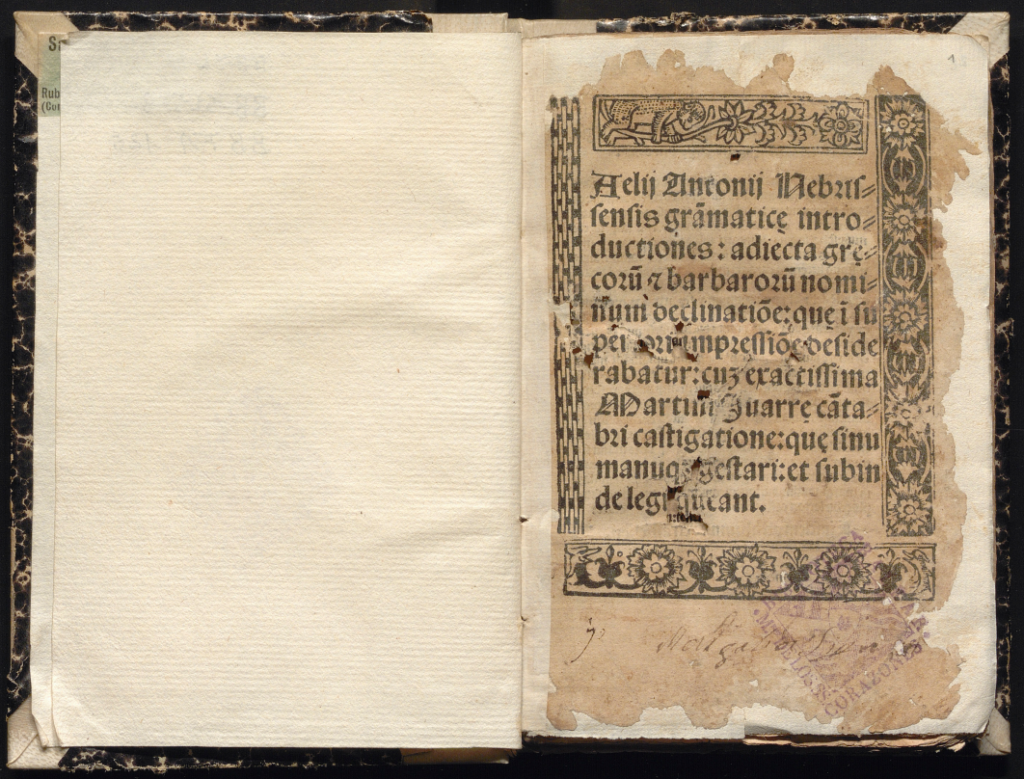 Rub
(Cor
1
Aelij Antonij Nebris⸗
sensis grãmaticę intro⸗
ductiones: adiecta grę⸗
corũ ⁊ barbarorũ nomi⸗
num declinatiõe: quę ĩ su
impressiõe deside
rabatur: cuȝ exactissima
Martini Iuarrę cãta⸗
bri castigatione: quę sinu
gestari: et subin
de legi queant.
CORAZONES